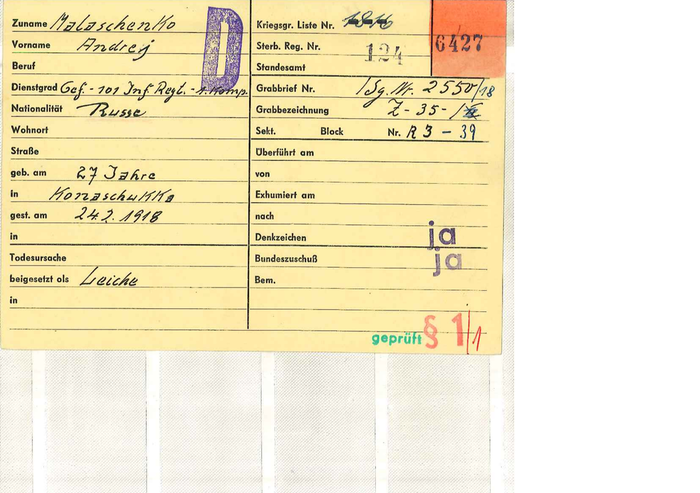 Zuname Malaschenko
Vorname Andrej
Beruf
Dienstgrad Gef. - 101 Inf. Regt. - 1. Komp.
Nationalität Russe
Wohnort
Straße
geb. am 27 Jahre
in Konaschukka
gest. am 24.2.1918
in
Todesursache
beigesetzt als Leiche
in
D
Kriegsgr. Liste Nr.
Sterb. Reg. Nr. 124
Standesamt
6427
Grabbrief Nr. 1Sg. Nr. 2550/18
Grabbezeichnung Z - 35 -
Sekt. Block Nr. R 3 - 39
Überführt am
von
Exhumiert am
nach
Denkzeichen ja
Bundeszuschuß ja
Bem.
geprüft § 1/1